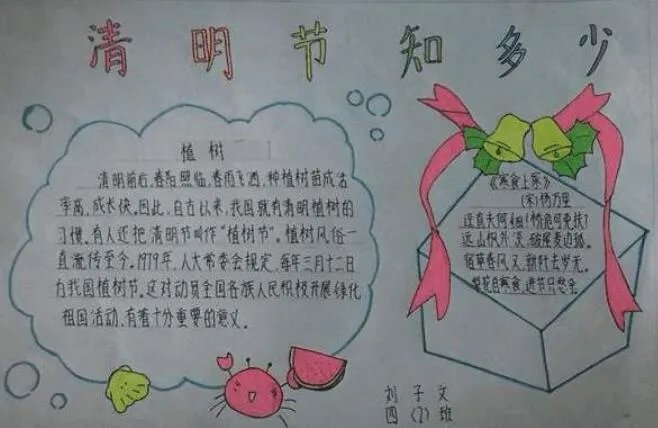 清明节知多少
植树
清明前后,春阳照临,春雨飞洒,种植树苗成活
率高,成长快。因此,自古以来,我国就有清明植树的
习惯,有人还把清明节叫作“植树节”。植树风俗一
直流传至今。1979年,人大常委会规定,每年三月十二日
为我国植树节。这对动员全国各族人民积极开展绿化
祖国活动,有着十分重要的意义。
《寒食上冢》
(宋)杨万里
迳直夫何细!桥危可免扶?
远山枫外淡,破屋麦边孤。
宿草春风又,新阡去岁无。
梨花自寒食,进节只愁余。
刘子文
四(7)班